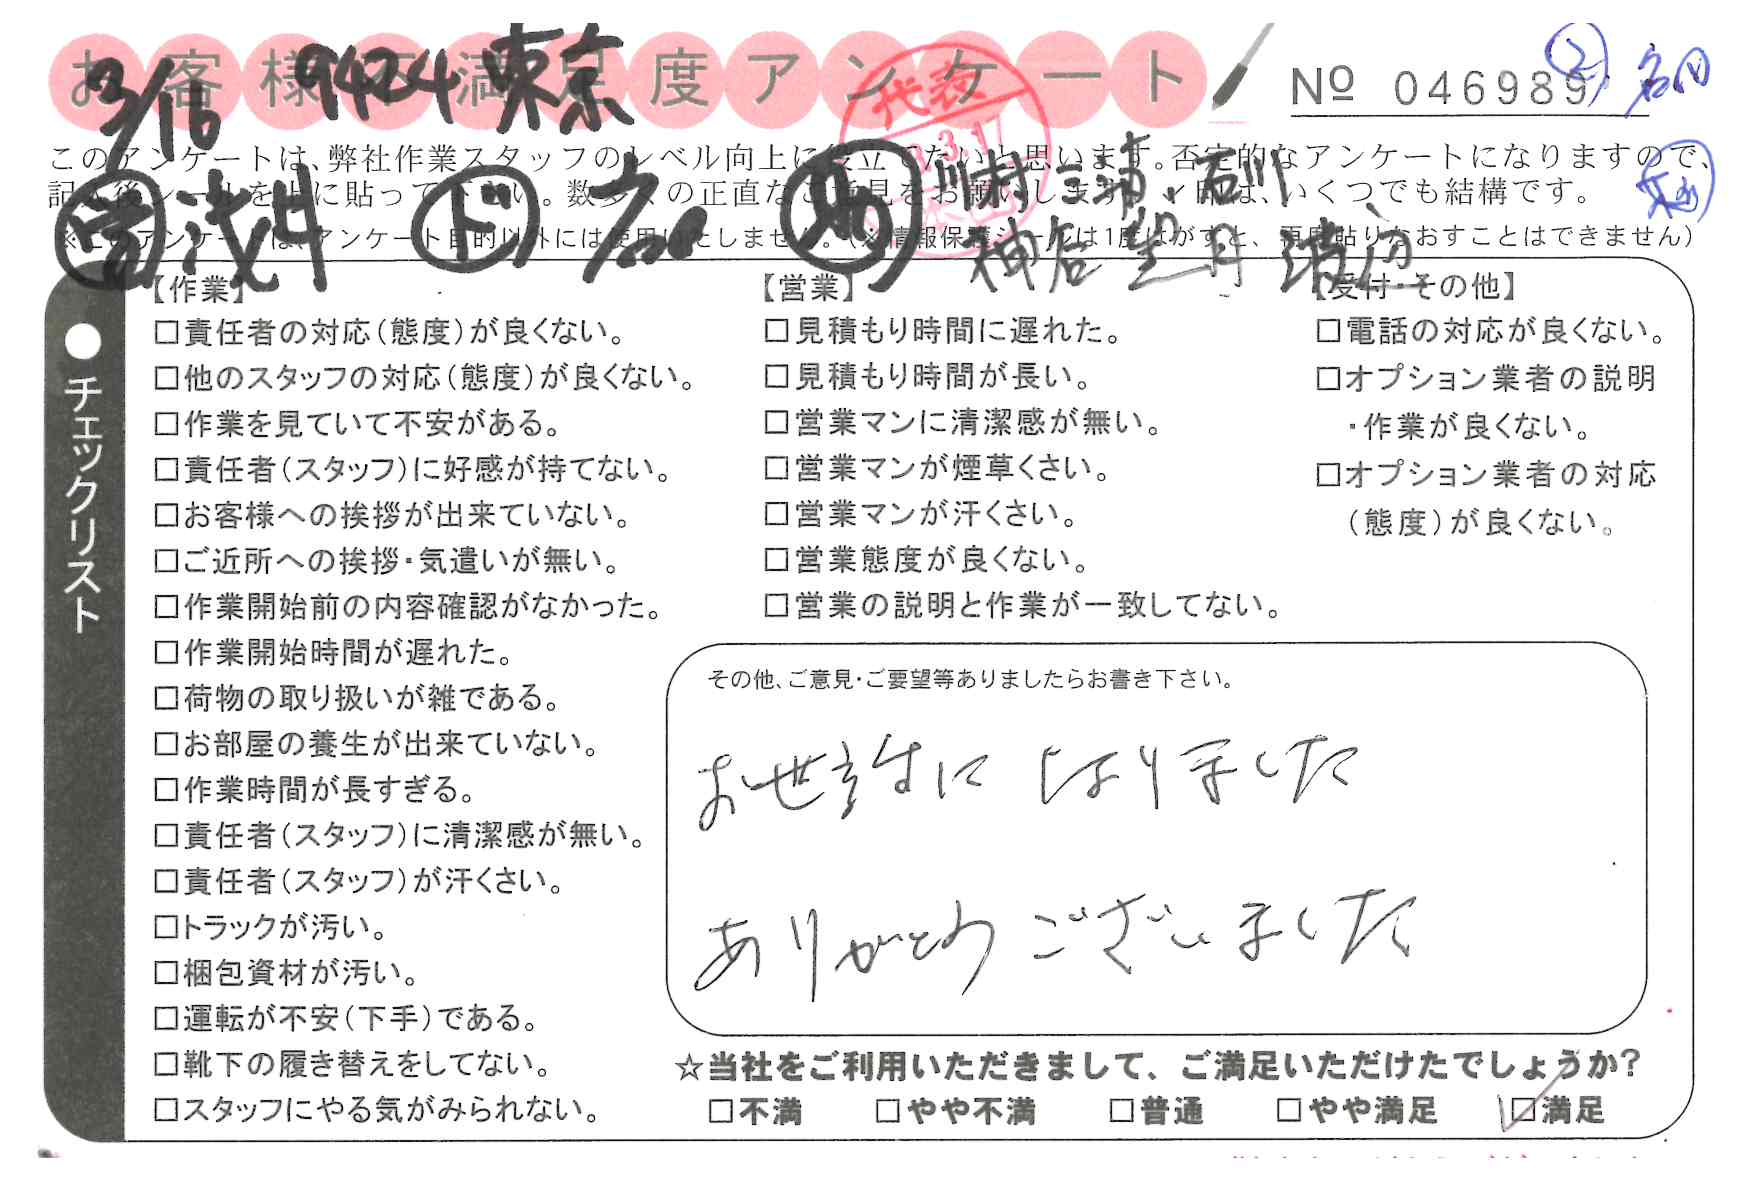 お客様不満足度アンケート
№ 046989
3/16 9424 東京
代表
このアンケートは、弊社作業スタッフのレベル向上に役立てたいと思います。否定的なアンケートになりますので、
記入後シールを上に貼って下さい。数多くの正直なご意見をお願いします。✓印は、いくつでも結構です。
※このアンケートは、アンケート目的以外には使用いたしません。（※情報保護シールは1度はがすと、再度貼りなおすことはできません）
浅井 ド 川村 三浦・石川
神居 望月 渡辺
●チェックリスト
【作業】
□責任者の対応（態度）が良くない。
□他のスタッフの対応（態度）が良くない。
□作業を見ていて不安がある。
□責任者（スタッフ）に好感が持てない。
□お客様への挨拶が出来ていない。
□ご近所への挨拶・気遣いが無い。
□作業開始前の内容確認がなかった。
□作業開始時間が遅れた。
□荷物の取り扱いが雑である。
□お部屋の養生が出来ていない。
□作業時間が長すぎる。
□責任者（スタッフ）に清潔感が無い。
□責任者（スタッフ）が汗くさい。
□トラックが汚い。
□梱包資材が汚い。
□運転が不安（下手）である。
□靴下の履き替えをしてない。
□スタッフにやる気がみられない。
【営業】
□見積もり時間に遅れた。
□見積もり時間が長い。
□営業マンに清潔感が無い。
□営業マンが煙草くさい。
□営業マンが汗くさい。
□営業態度が良くない。
□営業の説明と作業が一致してない。
【受付・その他】
□電話の対応が良くない。
□オプション業者の説明
・作業が良くない。
□オプション業者の対応
（態度）が良くない。
その他、ご意見・ご要望等ありましたらお書き下さい。
お世話になりました
ありがとうございました
☆当社をご利用いただきまして、ご満足いただけたでしょうか？
□不満 □やや不満 □普通 □やや満足 ☑満足